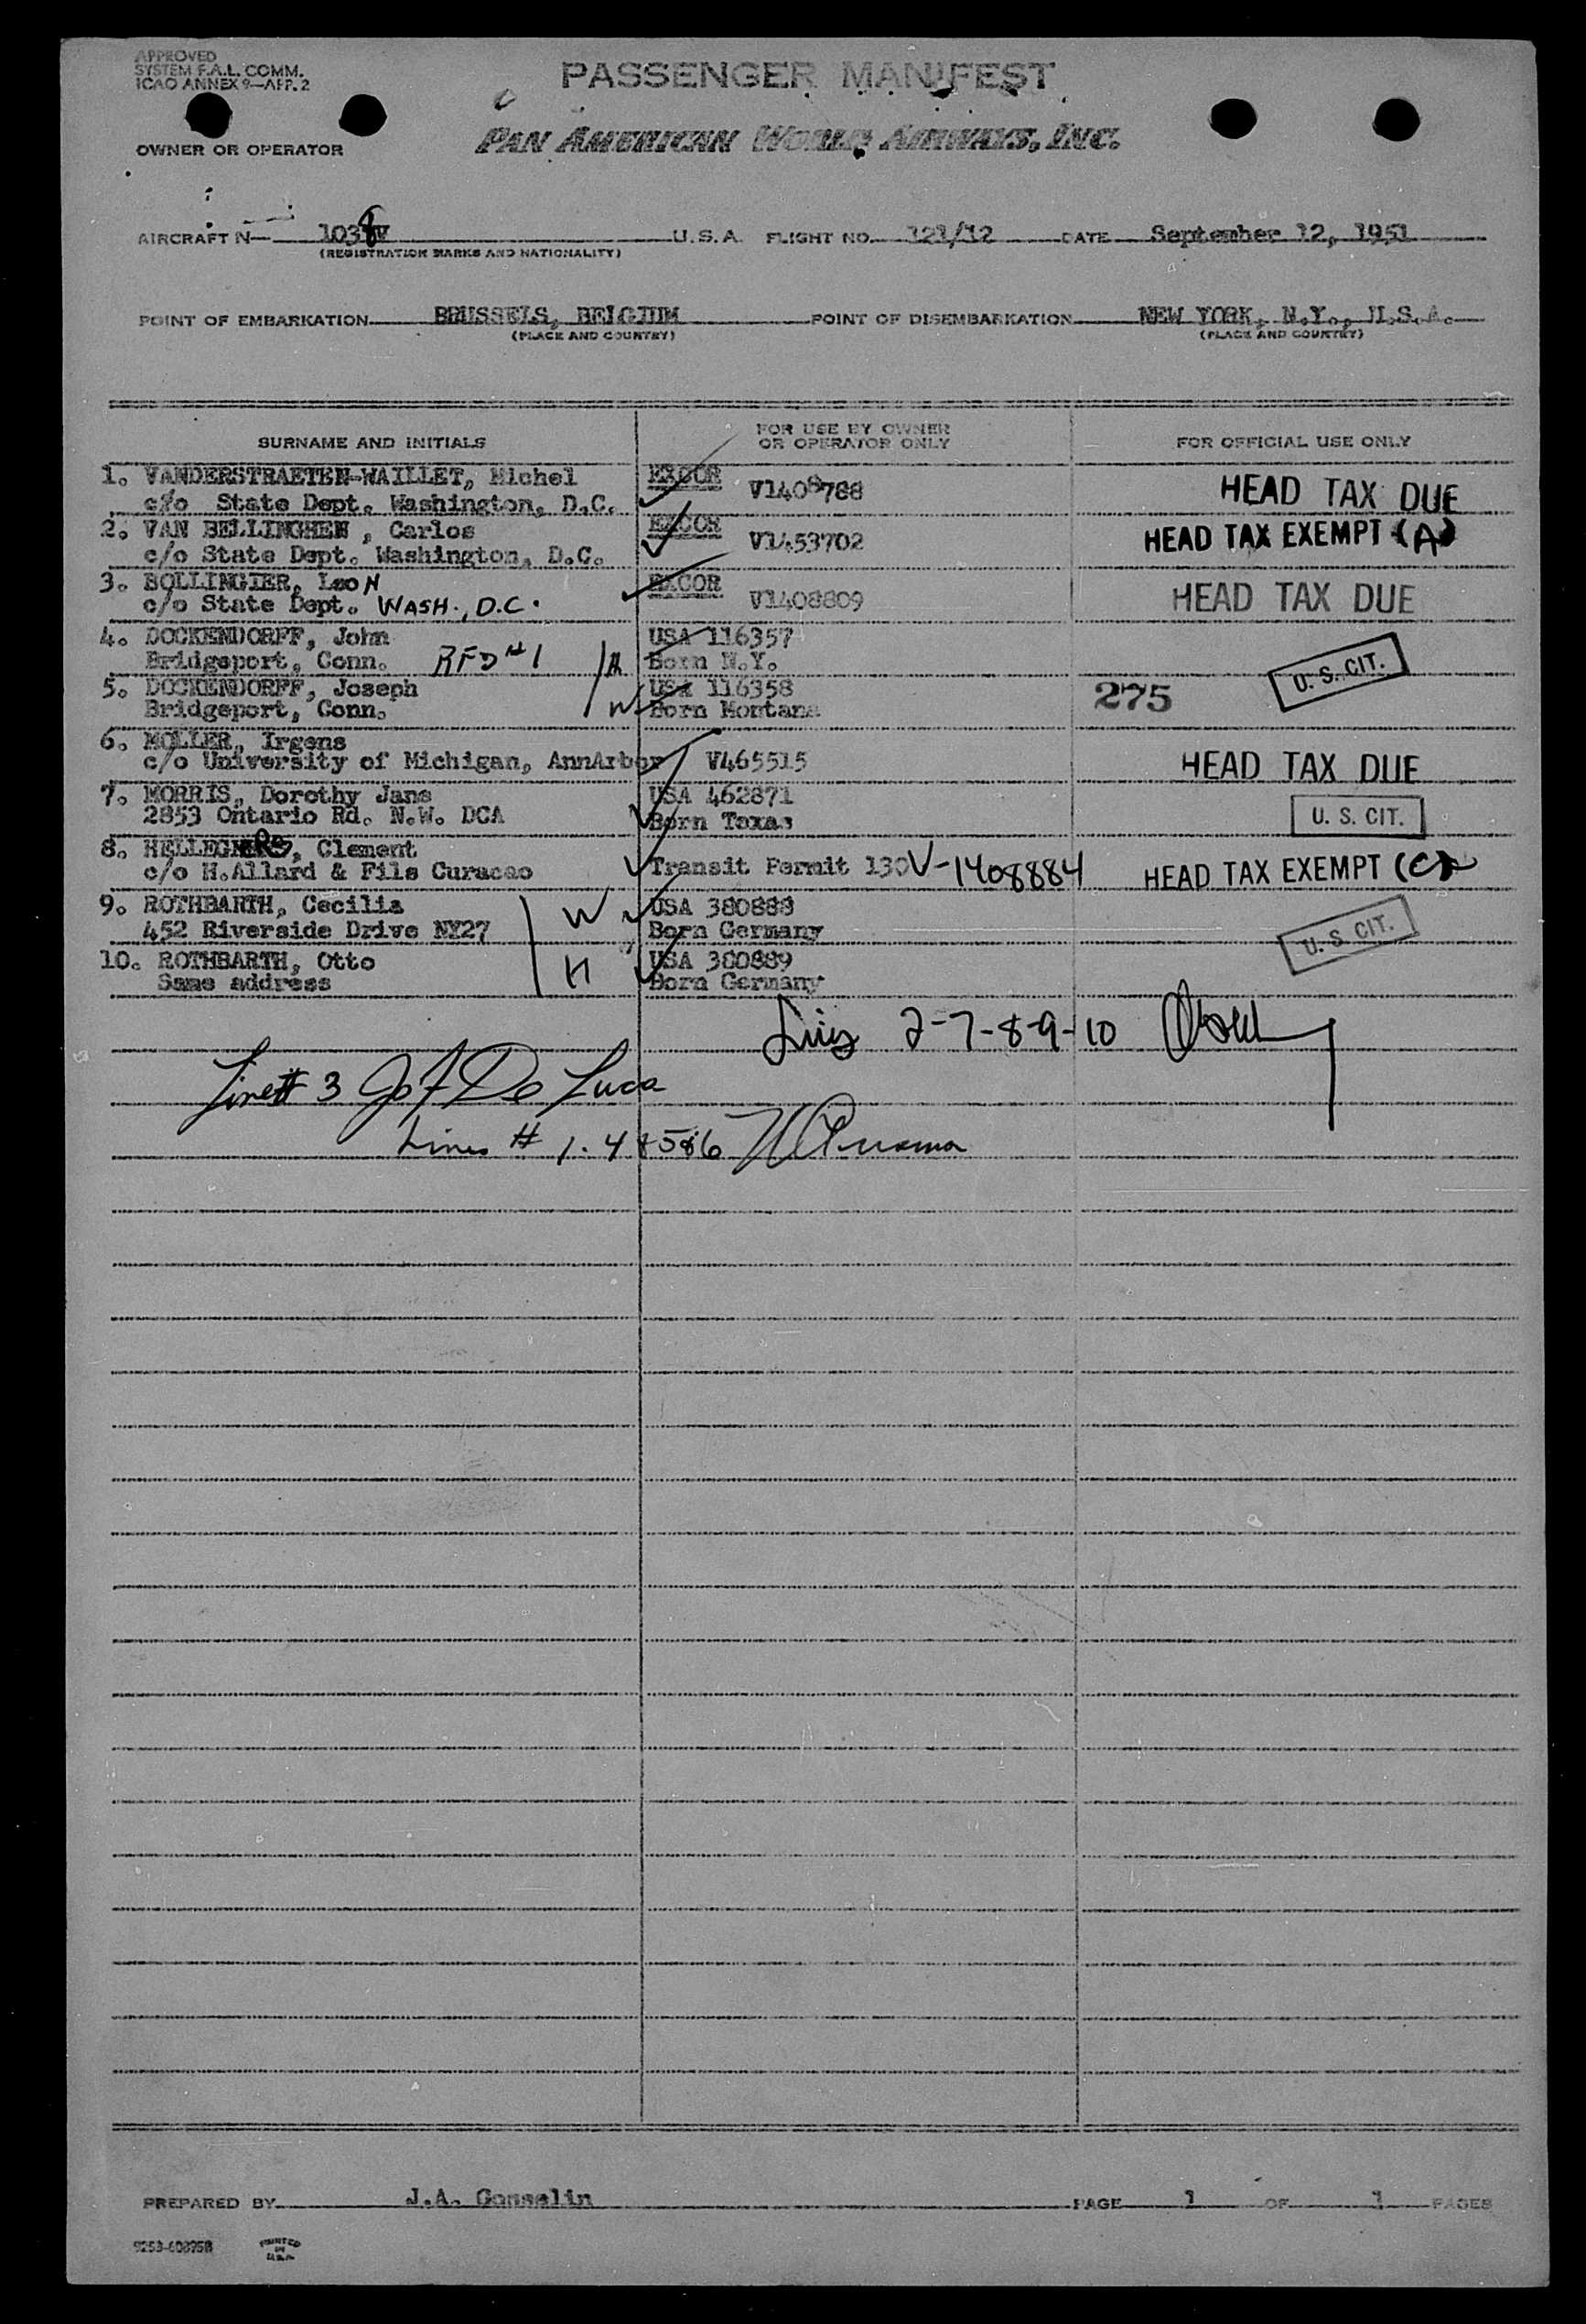 APPROVED
SYSTEM F.A.L. COMM.
ICAO ANNEX 9—APP. 2
PASSENGER MANIFEST
OWNER OR OPERATOR
PAN AMERICAN WORLD AIRWAYS, INC.
AIRCRAFT N— 1038V U.S.A. FLIGHT NO. 121/12 DATE September 12, 1951
(REGISTRATION MARKS AND NATIONALITY)
POINT OF EMBARKATION BRUSSELS, BELGIUM POINT OF DISEMBARKATION NEW YORK, N.Y., U.S.A.
(PLACE AND COUNTRY) (PLACE AND COUNTRY)
SURNAME AND INITIALS
FOR USE BY OWNER
OR OPERATOR ONLY
FOR OFFICIAL USE ONLY
1. VANDERSTRAETEN-WAILLET, Michel EXCOR V1408788 HEAD TAX DUE
c/o State Dept. Washington, D.C.
2. VAN BELLINGHEN , Carlos EXCOR V1453702 HEAD TAX EXEMPT (A)
c/o State Dept. Washington, D.C.
3. BOLLINGIER, LeoN EXCOR V1408809 HEAD TAX DUE
c/o State Dept. WASH., D.C.
4. DOCKENDORFF, John USA 116357
Bridgeport, Conn. RFD #1 H Born N.Y. U. S. CIT.
5. DOCKENDORFF, Joseph USA 116358 275
Bridgeport, Conn. W Born Montana
6. MOLLER, Irgens
c/o University of Michigan, AnnArbor V465515 HEAD TAX DUE
7. MORRIS, Dorothy Jane USA 462871 U. S. CIT.
2853 Ontario Rd. N.W. DCA Born Texas
8. HELLEGERS, Clement
c/o H.Allard & Fils Curacao Transit Permit 130 V-1408884 HEAD TAX EXEMPT (C)
9. ROTHBARTH, Cecilia W USA 380888
452 Riverside Drive NY27 Born Germany U. S. CIT.
10. ROTHBARTH, Otto H USA 380889
Same address Born Germany
2-7-8-9-10
Line # 3 De Luca
Lines # 1-4 & 5 & 6
PREPARED BY J.A. Gosselin PAGE 1 OF 1 PAGES
9253-60395B PRINTED
IN
U.S.A.